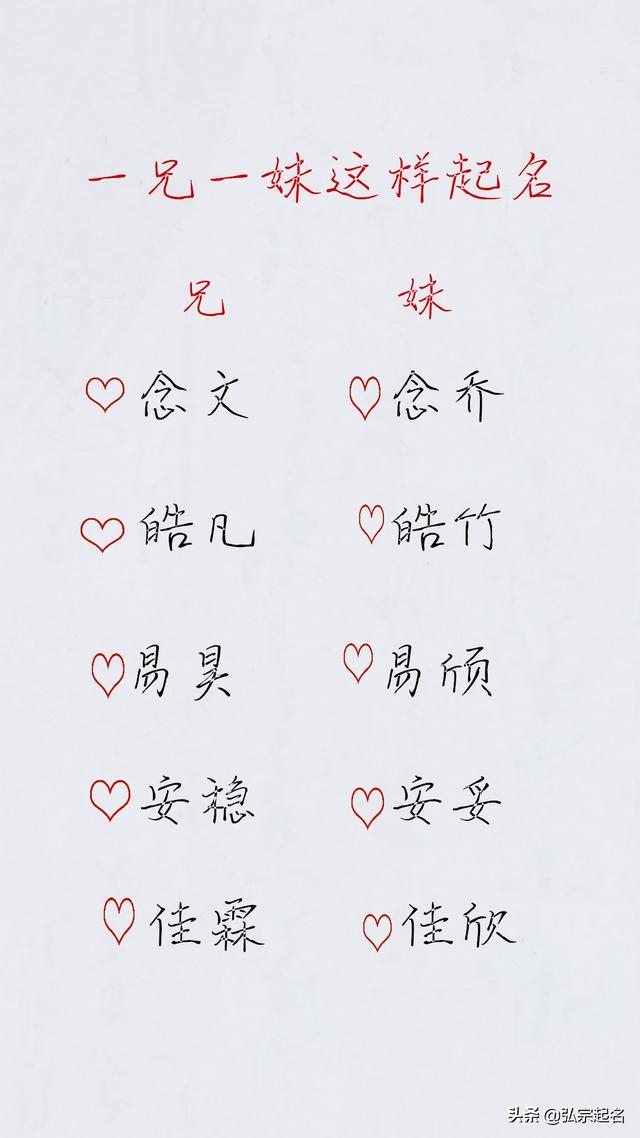 一兄一妹这样起名
兄 妹
念文 念乔
皓凡 皓竹
易昊 易颀
安稳 安妥
佳霖 佳欣
头条 @弘宗起名